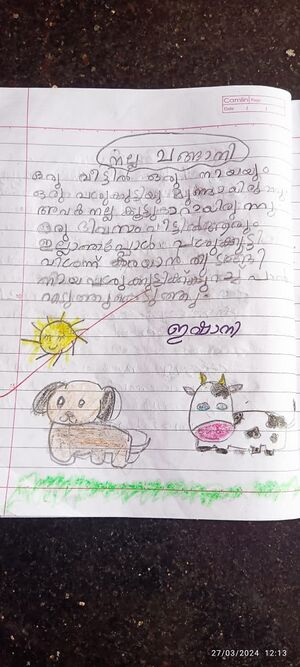 Camlin Page
Date / /
നല്ല ചങ്ങാതി
ഒരു വീട്ടിൽ ഒരു നായയും
ഒരു പശുക്കുട്ടിയു മുണ്ടായിരുന്നു
അവർ നല്ല കൂട്ടുകാറായിരുന്നു
ഒരു ദിവസം വീട്ടിൽ ആരും
ഇല്ലാത്തപ്പോൾ പശുക്കുട്ടി
വിശന്ന് കരയാൻ തുടങ്ങി
നായ പശുക്കുട്ടിക്ക്
കൊടുത്തു.
ഇഷാനി
27/03/2024 12:13